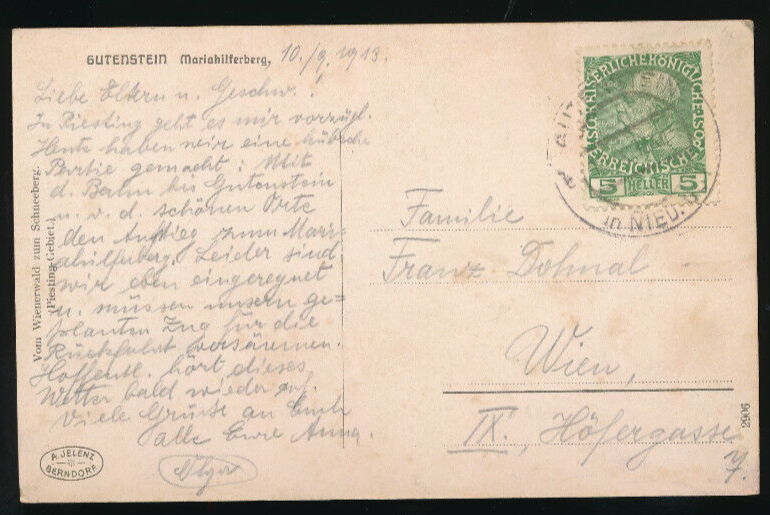 GUTENSTEIN Mariahilferberg, 10./9. 1913.
Liebe Eltern u. Geschw.!
In Piesting geht es mir vorzügl.
Heute haben wir eine hübsche
Partie gemacht: Mit
d. Bahn bis Gutenstein
u. v. d. schönen Orte
den Aufstieg zum Mari-
ahilferberg. Leider sind
wir eben eingeregnet
u. müssen unsern ge=
planten Zug für die
Rückfahrt versäumen.
Hoffentl. hört dieses
Wetter bald wieder auf.
Viele Grüße an Euch
alle Eure Anna.
Olga
Vom Wienerwald zum Schneeberg.
(Piesting-Gebiet.)
A. JELENZ
BERNDORF
KAISERLICHE KÖNIGLICHE
ÖSTERREICHISCHE POST
5 HELLER 5
in NIED.
Familie
Franz Dohnal
Wien,
IX., Höfergasse
7.
2906